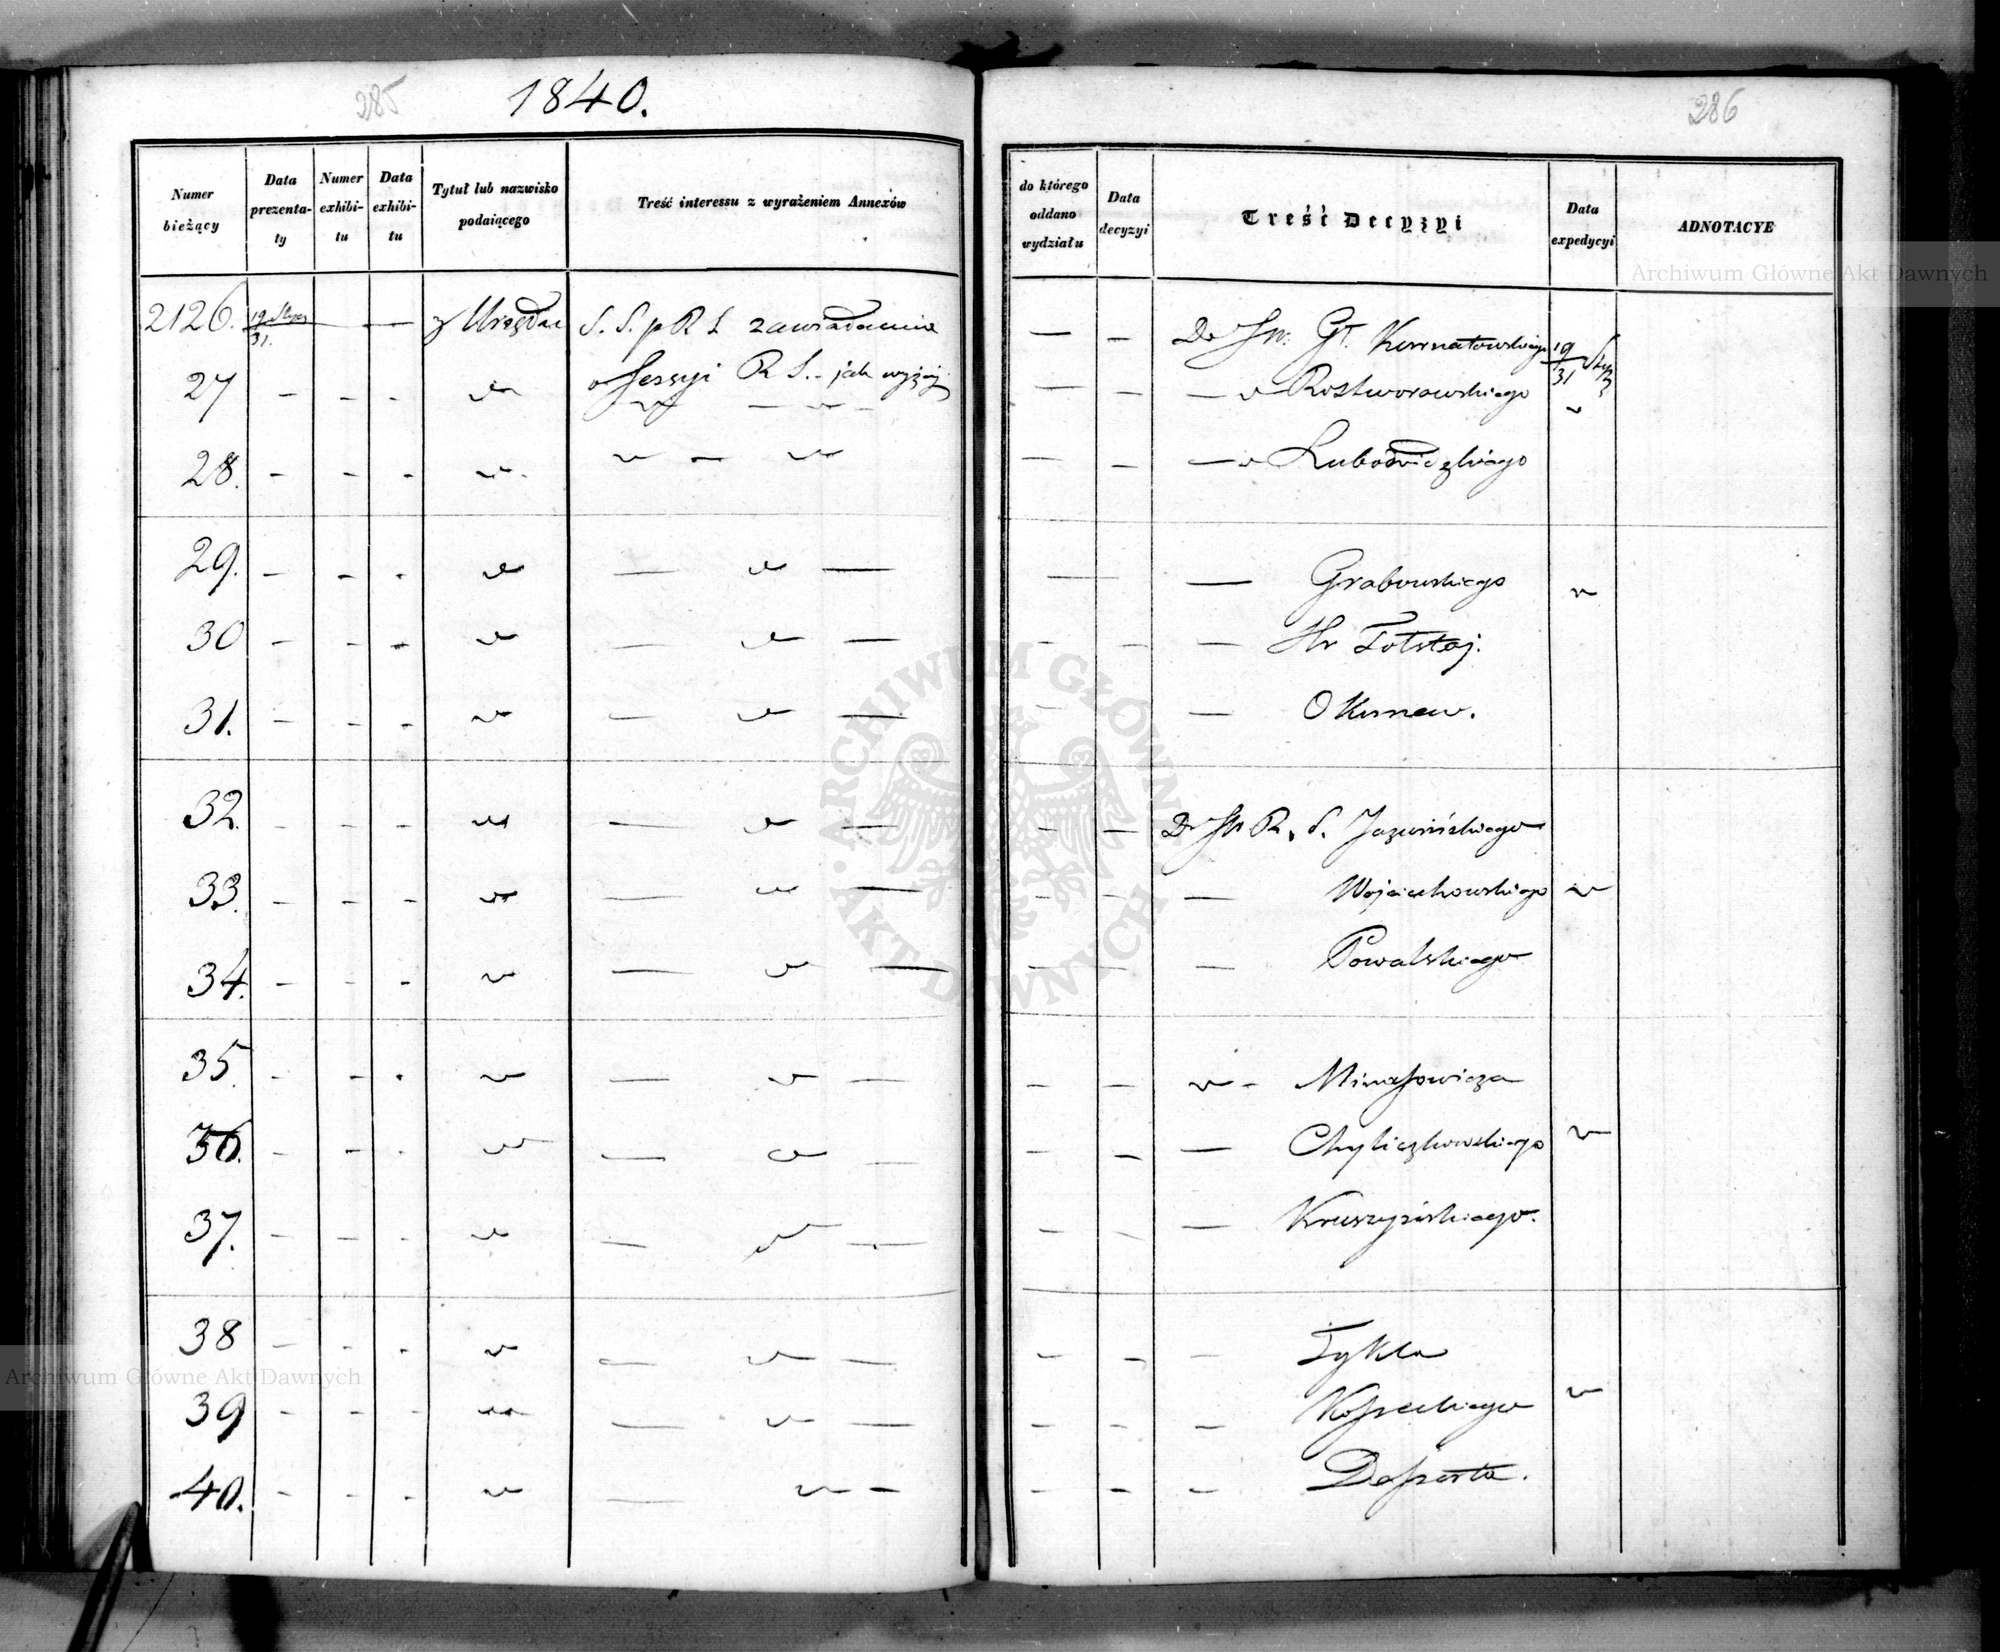 285
1840.
Numer bieżący
Data prezentaty
Numer exhibitu
Data exhibitu
Tytuł lub nazwisko podaiącego
Treść interessu z wyrażeniem Annexów
2126. 19/31 Stycz — — z Urzędu S. S. p R S zawiadamia
o Sessyi R S. jak wyżej
27 - - -
28. - - -
29. - - -
30 - - -
31. - - -
32. - - -
33. - - -
34. - - -
35. - - -
36. - - -
37. - - -
38 - - -
39 - - -
40. - - -
286
do którego oddano wydziału
Data decyzyi
Treść Decyzyi
Data expedycyi
ADNOTACYE
— - Do JW. 19/31 Stycz
— - Rostworowskiego
— - Lubowidzkiego
— Grabowskiego
- - — Hr Tołstoj.
- — Okuniew.
- - Do JW R. S. Jazwińskiego
- - — Wojciechowskiego
- - — Powalskiego
- - Minasowicza
- - — Chyliczkowskiego
- - — Kruszyńskiego.
- - - Tykla
- - - Kosseckiego
- - -
Archiwum Główne Akt Dawnych
ARCHIWUM GŁÓWNE AKT DAWNYCH
Archiwum Główne Akt Dawnych